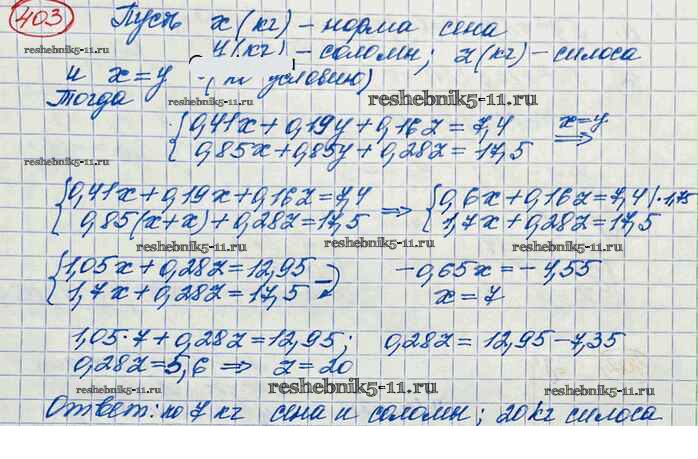 403
Пусть x(кг) – норма сена
y(кг) – соломы; z(кг) – силоса
reshebnik5-11.ru reshebnik5-11.ru
и x=y (по условию)
Тогда reshebnik5-11.ru
{0,41x+0,19y+0,16z=7,4 x=y
0,85x+0,85y+0,28z=17,5 ⇒
reshebnik5-11.ru
{0,41x+0,19x+0,16z=7,4 ⇒ {0,6x+0,16z=7,4 |·1,75
0,85(x+x)+0,28z=17,5 1,7x+0,28z=17,5
reshebnik5-11.ru reshebnik5-11.ru
{1,05x+0,28z=12,95 -0,65x=-4,55
1,7x+0,28z=17,5 x=7
reshebnik5-11.ru reshebnik5-11.ru
1,05·7+0,28z=12,95; 0,28z=12,95-7,35
0,28z=5,6 ⇒ z=20
reshebnik5-11.ru reshebnik5-11.ru
Ответ: по 7 кг сена и соломы; 20 кг силоса